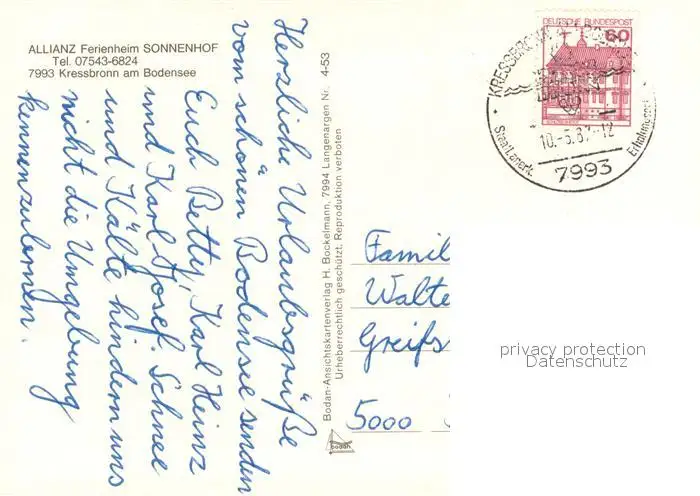 ALLIANZ Ferienheim SONNENHOF
Tel. 07543-6824
7993 Kressbronn am Bodensee
Herzliche Urlaubsgrüße
vom schönen Bodensee senden
Euch Betty, Karl Heinz
und Karl Josef. Schnee
und Kälte hindern uns
nicht die Umgebung
kennenzulernen.
Bodan-Ansichtskartenverlag H. Bockelmann, 7994 Langenargen Nr. 4-53
Urheberrechtlich geschützt. Reproduktion verboten
bodan
DEUTSCHE BUNDESPOST
60
KRESSBRONN
Staatl.anerk.
Erholungsort
7993
Famil
Walte
Greifs
5000
privacy protection
Datenschutz